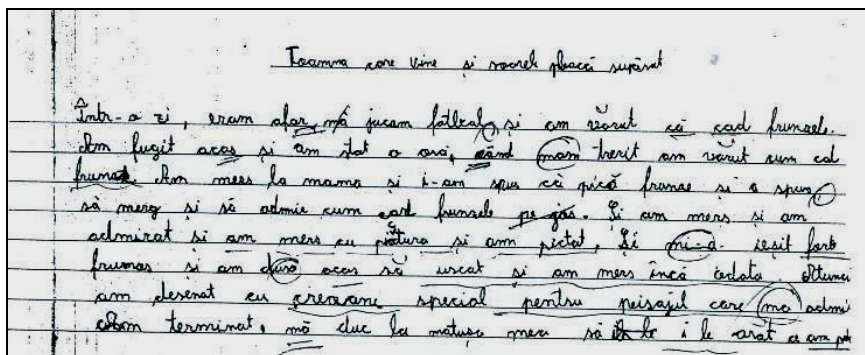 Toamna care vine și soarele pleacă supărat
Într-o zi, eram afar, mă jucam fotbal, și am văzut că cad frunzele.
Am fugit acas și am stat o oră, când mam trezit am văzut cum cad
frumos. Am mers la mama si i-am spus că pică frunze și a spus
să merg și să admir cum cad frunzele pe jos. Și am mers si am
admirat si am mers cu pictura și am pictat, Și mi-a ieșit fort
frumos si am dus acas să uscat și am mers încă odata. Atunci
am desenat cu creioane special pentru peisajul care ma admi
Am terminat, mă duc la matușa mea să i le arăt ce am